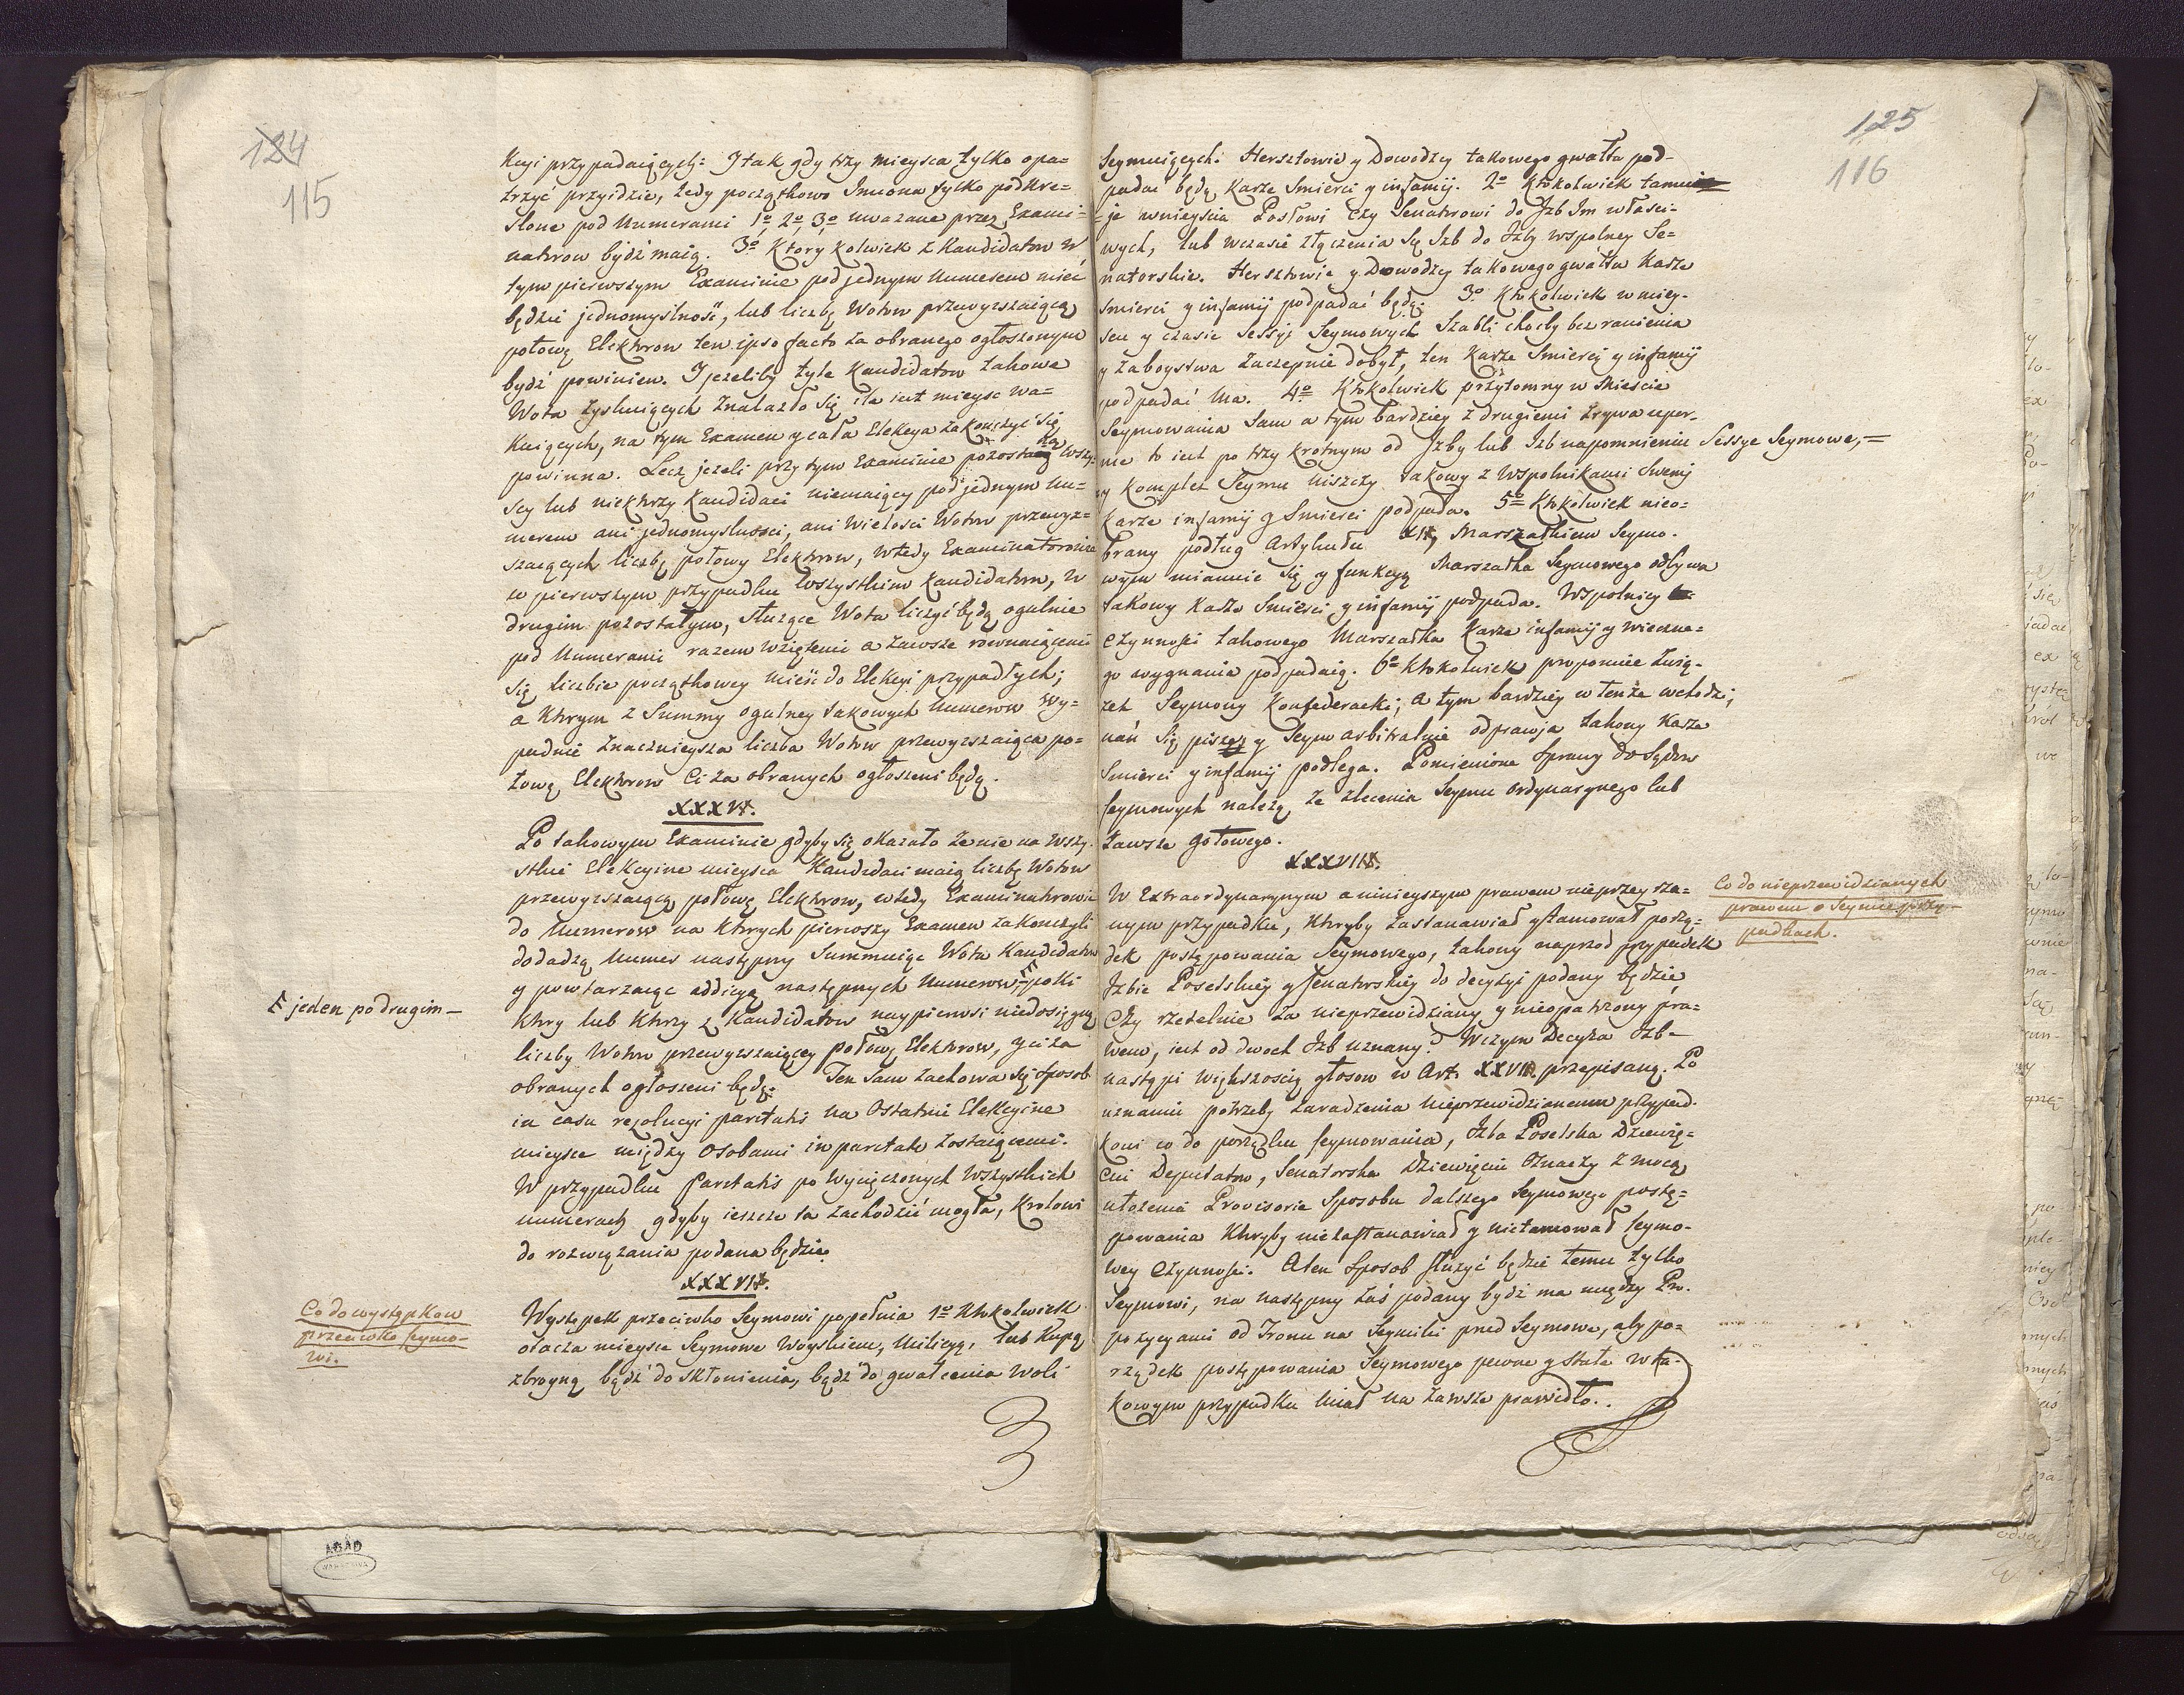 124
115
kcyi przypadaiących: J tak gdy trzy mieysca tylko opa=
trzyć przyidzie, tedy początkowo Imiona tylko podkre=
slone pod Numerami 1º, 2º, 3º uwazane przez Exami=
natorow bydź maią. 3º Ktory kolwiek z Kandidatow w
tym pierwszym Examinie pod jednym Numerem mieć
będzie jednomyslność, lub liczbę Wotow przewyzszaiącą
połowę Elektorow ten ipso facto za obranego ogłoszonym
bydź powinien. I jezeliby tyle Kandidatow takowe
Wota zyskuiących znalazło się ile iest mieysc wa=
kuiących, na tym Examen y cała Elekcya zakończyć się
powinna. Lecz jezeli przy tym Examinie pozostaną wszy=
scy lub niektorzy Kandidaci niemaiący pod jednym Nu=
merem ani jednomyslnosci, ani Wielosci Wotow przewyz=
szaiących liczbę połowy Elektorow, wtedy Examinatorowie
w pierwszym przypadku wszystkim Kandidatom, w
drugim pozostałym, słuzące Wota liczyć będą ogulnie
pod Numerami razem wziętemi a zawsze rownaiącemi
się liczbie początkowey Mieść do Elekcyi przypadłych;
a ktorym z Summy ogulney takowych Numerow wy=
padnie znacznieysza liczba Wotow przewyzszaiąca po=
łowę Elektorow Ci za obranych ogłoszeni będą.
XXXVI.
Po takowym Examinie gdyby się okazało ze nie na wszy=
stkie Elekcyine mieysca Kandidaci maią liczbę Wotow
przewyzszaiącą połowę Elektorow, wtedy Examinatorowie
do Numerow na ktorych pierwszy Examen zakonczyli
dodadzą Numer następny Summuiąc Wota Kandidatow
y powtarzaiąc addicyą następnych Numerow, poki
jeden po drugim –
ktory lub ktorzy z Kandidatow naypierwsi niedosięgną
liczby Wotow przewyzszaiącey połowę Elektorow, y ci za
obranych ogłoszeni będą. Ten sam zachowa się sposob
in casu rezolucyi paritatis na Ostatnie Elekcyine
mieysce między Osobami in paritate zostaiącemi.
W przypadku Paritatis po wyięczonych wszystkich
numerach gdyby ieszcze ta zachodzić mogła, Krolowi
do rozwiązania podana będzie.
XXXVII.
Co do występkow
przeciwko seymo-
wi.
Występek przeciwko Seymowi popełnia 1º Ktokolwiek
otacza mieysce Seymowe Woyskiem, Milicyą, lub Kupą
zbroyną bądź do skłonienia, bądź do gwałcenia Woli
125
116
Seymuiących. Hersztowie y Dowodzcy takowego gwałtu pod-
padać będą Karze Smierci y infamij. 2º Ktokolwiek tamu
=je wnieyscia Posłowi czy Senatorowi do Jzb Im własci-
wych, lub wczasie złączenia się Jzb do Jzby wspolney Se=
natorskie. Hersztowie y Dowodzcy takowego gwałtu Karze
smierci y infamij podpadać będą. 3º Ktokolwiek w miey-
scu y czasie Sessyi Seymowych Szabli chocby bez ranienia
y zaboystwa zaczepnie dobył, ten Karze Smierci y infamij
podpadać Ma. 4º Ktokolwiek przytomny w Mieście
Seymowania Sam a tym bardziey z drugiemi zrywa upor-
nie to iest po trzy krotnym od Jzby lub Jzb napomnieniu Sessye Seymowe, =
y Komplet Seymu niszczy takowy z Wspolnikami Swemi
Karze infamij y Smierci podpada. 5º Ktokolwiek nieo=
brany podług Artykułu XII, Marszałkiem Seymo-
wym mianuie się y funkcyą Marszałka Seymowego odbywa
takowy Karze Smierci y infamij podpada. Wspolnicy
czynnosci takowego Marszałka Karze infamij y wieczne=
go wygnania podpadaią. 6º Ktokolwiek proponuie Zwią-
zek Seymowy Konfederacki; a tym bardziey w tenze wchodzi,
nań się pisze, y Seym arbitralnie odprawia takowy Karze
Smierci y infamij podlega. Pomienione Sprawy do Sądow
Seymowych nalezą ze zlecenia Seymu ordynaryinego lub
zawsze gotowego.
XXXVIII.
Co do nieprzewidzianych
prawem o Seymie przy-
padkach.
W Extraordynaryinym a ninieyszym prawem nieprzeyrza=
nym przypadku, ktoryby zastanawiał y tamował porzą=
dek postępowania Seymowego, takowy naprzod przypadek
Jzbie Poselskiey y Senatorskiey do decyzyi podany będzie
Czy rzetelnie za nieprzewidziany y nieopatrzony pra=
wem, iest od dwoch Jzb uznany? W czym Decyzia Jzb –
nastąpi większoscią głosow w Art. XXVII. przepisaną. Po
uznaniu potrzeby zaradzenia nieprzewidzianemu przypad-
kowi co do porządku seymowania, Jzba Poselska Dziewię=
ciu Deputatow, Senatorska Dziewięciu Oznaczy z mocą
ułozenia Provisorie Sposobu dalszego Seymowego postę=
powania ktoryby niezastanawiał y nietamował seymo-
wey czynnosci. A ten Sposob słuzyć będzie temu tylko
Seymowi, na następny zaś podany bydź ma między Pro-
pozycyami od Tronu na Seymiki przed Seymowe, aby po=
rządek postępowania Seymowego pewne y stałe w ta-
kowym przypadku miał na zawsze prawidło.
AGAD
WARSZAWA